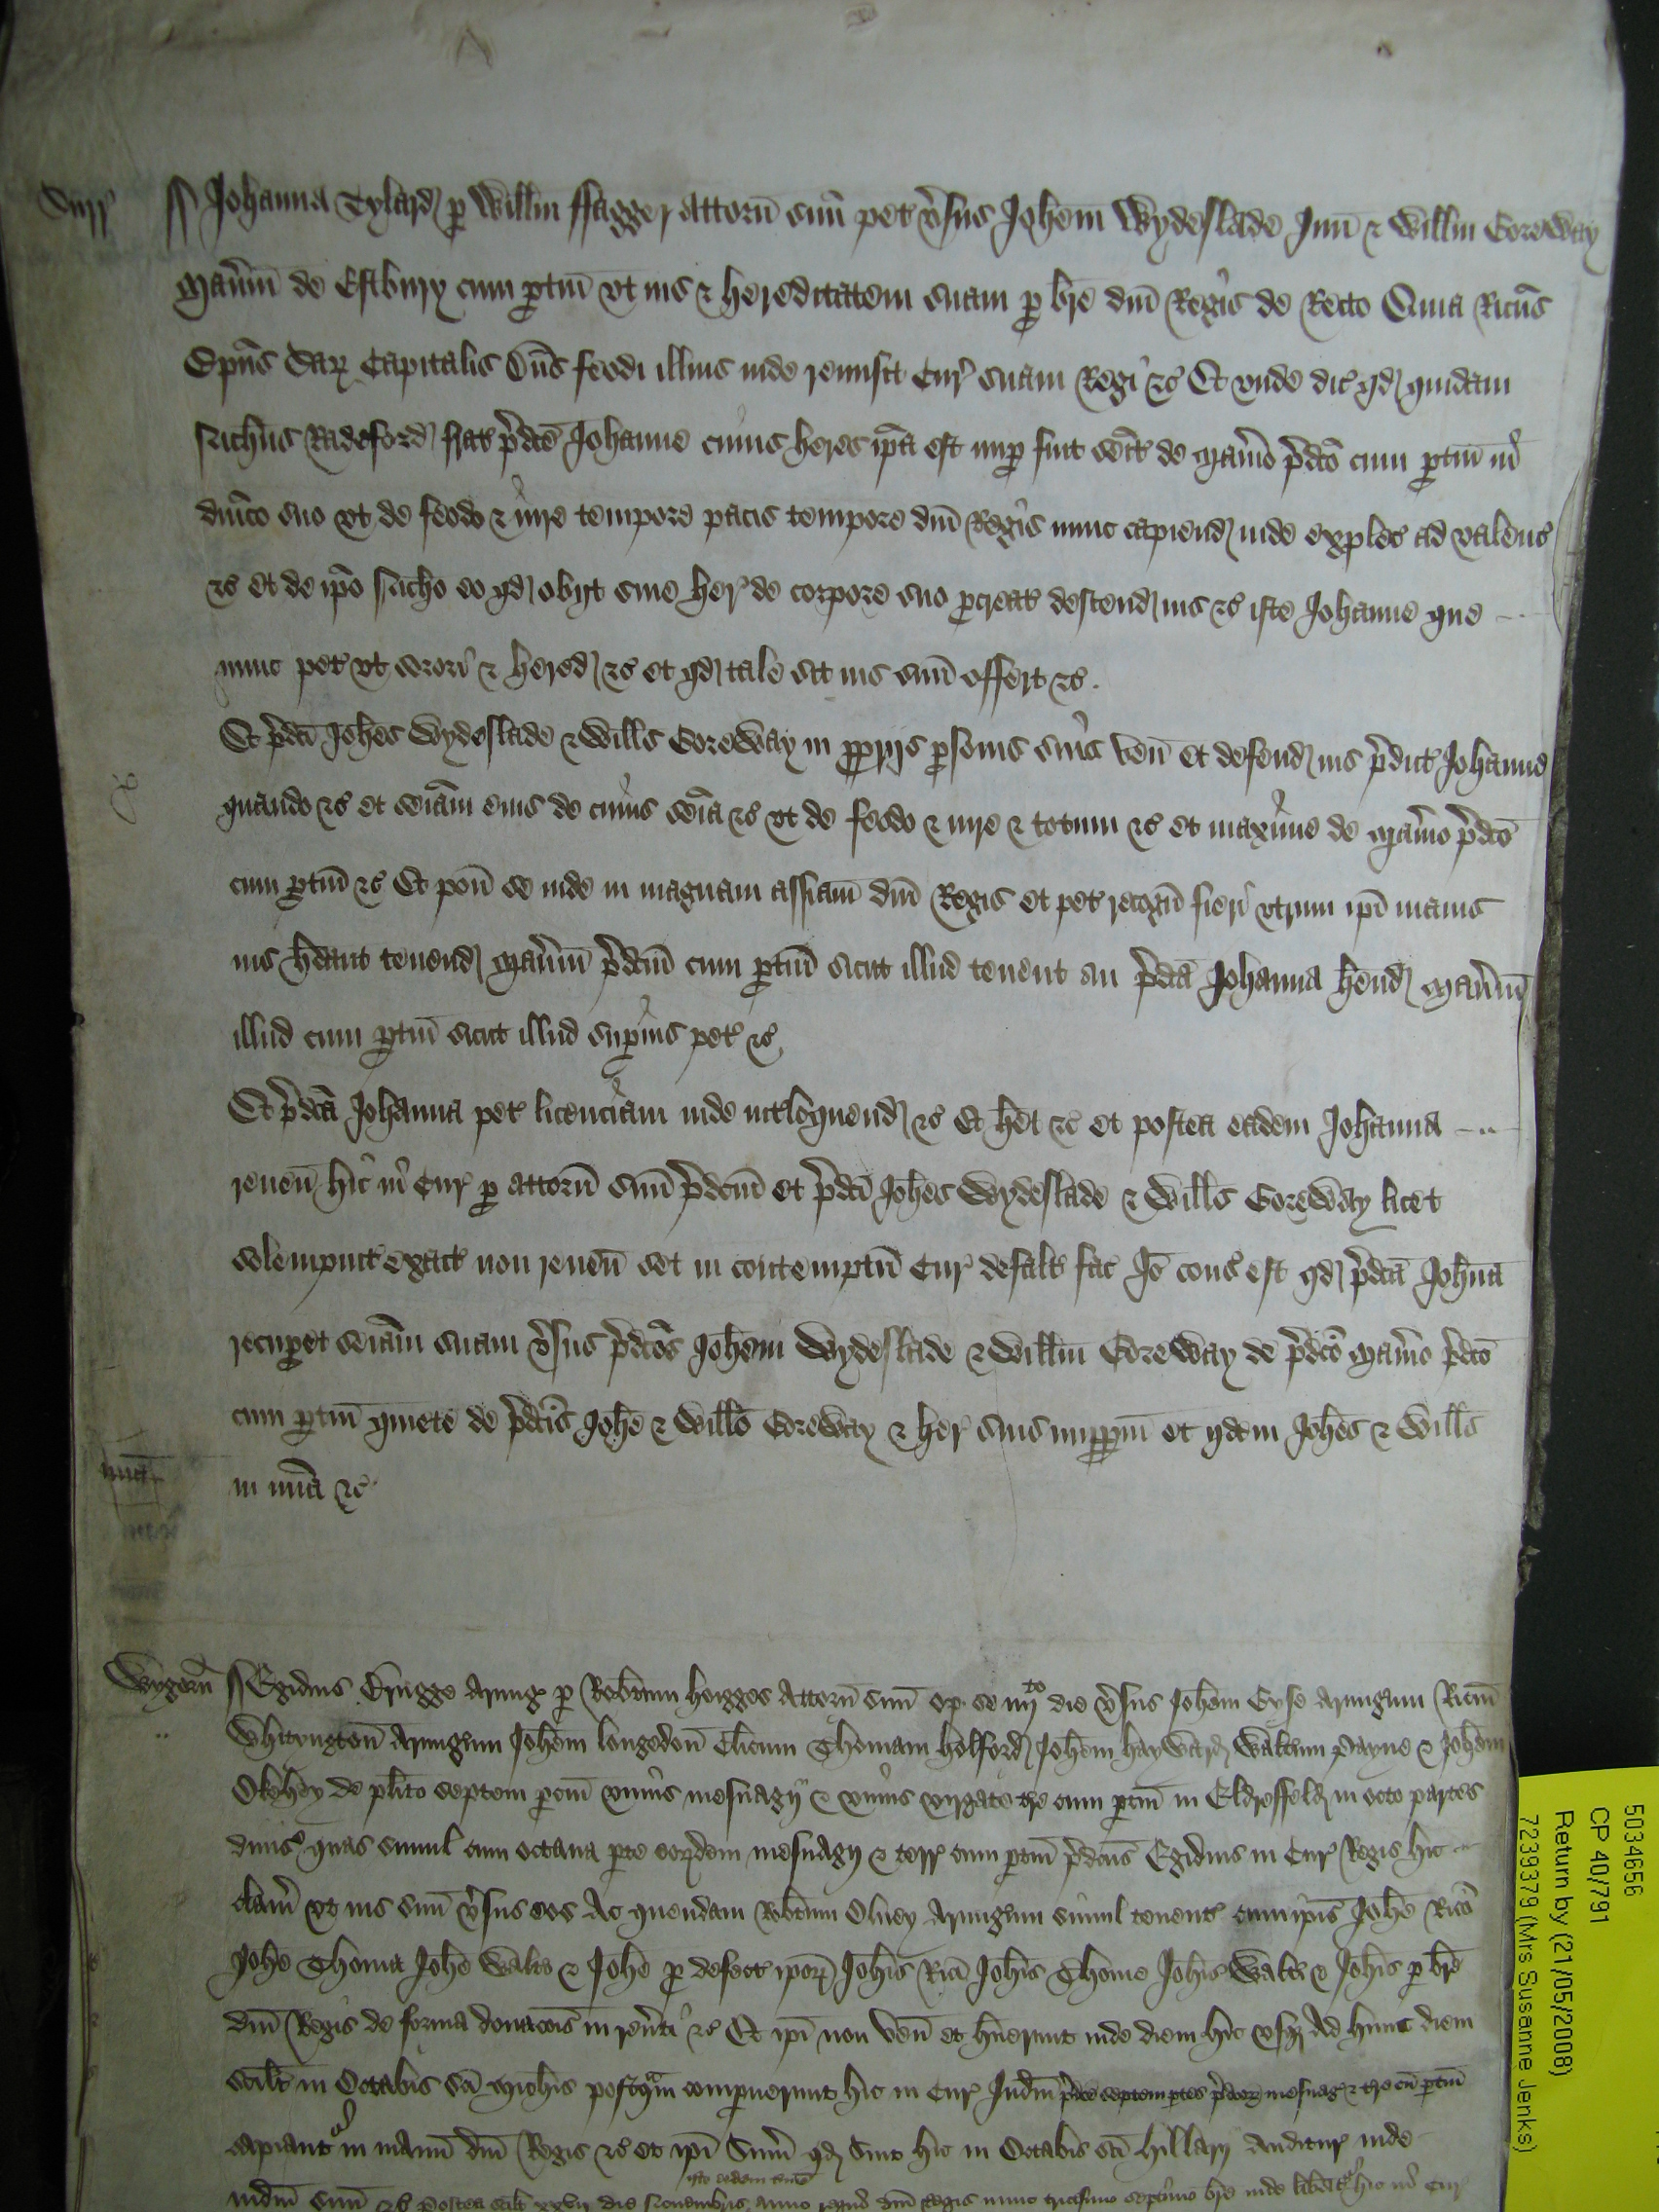 Johanna Tylard p Willm ffagger attorn suu pet vsus Johem Wydeslade Jun & Willm Goreway
Maniu de Estbury cum ptin vt ius & hereditatem suam p bre dni Regis de Recto Quia Ricus
Capitalis Dns feodi illius inde remisit Cur suam Regi &c Et unde dic qd quidam
Nichus Radeford frat pdce Johanne cuius heres ipa est nup fuit seit de Manio pdco cum ptin in
dnico suo vt de feodo & iure tempore pacis tempore dni Regis nunc capiend inde exples ad valenc
&c et de ipo Nicho eo qd obijt sine her de corpore suo pcreat descend ius &c iste Johanne que
nunc pet vt sorori & hered &c et qd tale sit ius suu offert &c.
Et pdci Johes Wydeslade & Wills Goreway in pprijs psonis suis ven et defend ius pdict Johanne
quando &c et seiam eius de cuius seia &c vt de feodo & iure & totum &c et maxime de Manio pdco
cum ptin &c Et pon se inde in magnam assiam dni Regis et pet recogn fieri vtrum ipi maius
ius heant tenend Maniu pdcm cum ptin sicut illud tenent an pdca Johanna hend Maniu
illud cum ptin sicut illud supius pet &c
Et pdca Johanna pet licenciam inde intloquend &c Et het &c et postea eadem Johanna
reven hic in Cur p attorn suu pdcm et pdci Johes Wydeslade & Wills Goreway licet
solempnit exact non reven set in contemptu Cur defalt fac Io cons est qd pdca Johna
recupet seiam suam vsus pdcos Johem Wydeslade & Willm Goreway de pdco Manio pdco
cum ptin quiete de pdcis Johe & Willo Goreway & her suis imppm et ijdem Johes & Wills
mia
in mia &c
Wygorn Egidius Brugge Armig p Robtum hegges Attorn suu op se iiijto die vsus Johem Gyse Armigum Ricm
Whityngton Armigum Johem longedon Clicum Thomam holford Johem hayward Waltum payne & Johem
Okehey de plito septem pciu unius mesuagij & unius virgate tre cum ptin in Eldresfeld in octo partes
divis quas simul cum octava pte eordem mesuagij & terr cum ptin pdcus Egidius in Cur Regis hic
clam vt ius suu vsus eos Ac quendam Robtum Olney Armigum simul tenent cum ipis Johe Rico
Johe Thoma Johe Walto & Johe p defect ipor Johis Rici Johis Thome Johis Walti & Johis p bre
dni Regis de forma donacois in revti &c Et ipi non ven et huerunt inde diem hic vsq Ad hunc diem
scilt in Octabis sci Michis postqam compuerunt hic in Cur Iudm pdce septem ptes pdcor mesuag & tre cu ptin
capiant in manu dni Regis &c et ipi Sum qd Sint hic in Octabis sci hillarij Auditur inde
iudm suu &c Postea scilt xxvij die Novembris anno regni dni Regis nunc tricesimo septimo bre inde hic in Cur
5034656
CP 40/791
Return by (21/05/2008)
7239379 (Mrs Susanne Jenks)